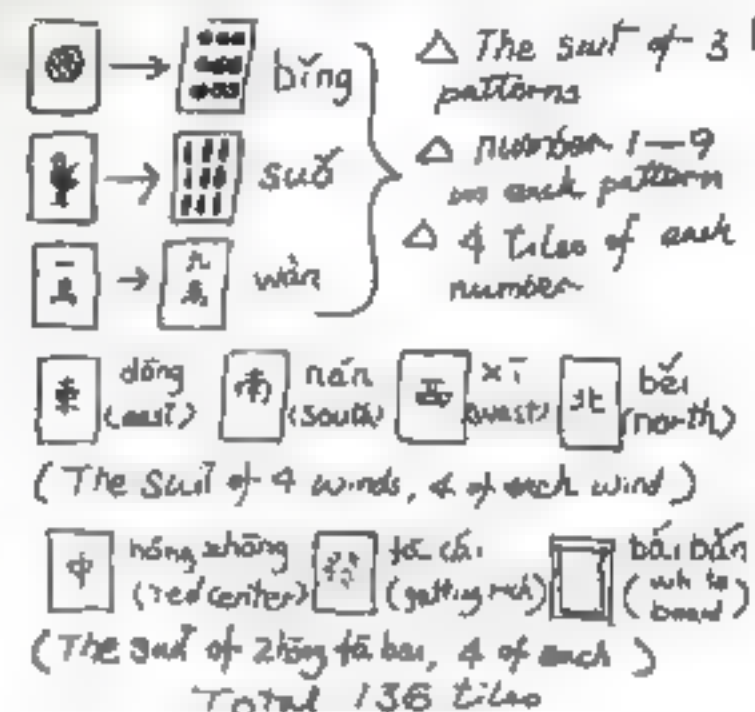 bǐng
△ The suit of 3
patterns
suǒ
△ number 1—9
on each pattern
一萬
九萬
wàn
△ 4 tiles of each
number
東
dōng
(east)
南
nán
(south)
西
xī
(west)
北
běi
(north)
(The suit of 4 winds, 4 of each wind)
中
hóng zhōng
(red center)
fā cái
(getting rich)
bái bǎn
(white
board)
(The suit of zhōng fā bai, 4 of each)
Total 136 tiles